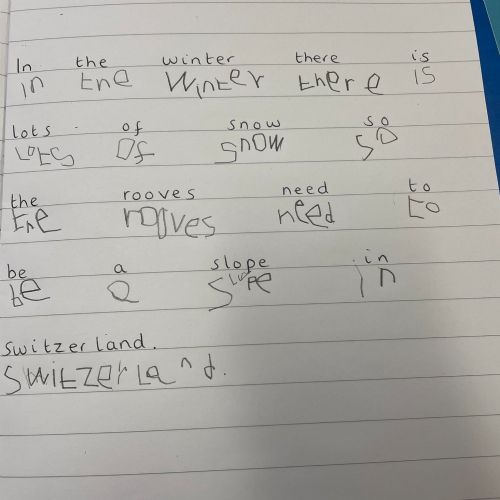 In the winter there is
in the winter there is
lots of snow so
Lots Of snow so
the rooves need to
the rooves need to
be a slope in
be a Slope in
switzerland.
Switzerland.